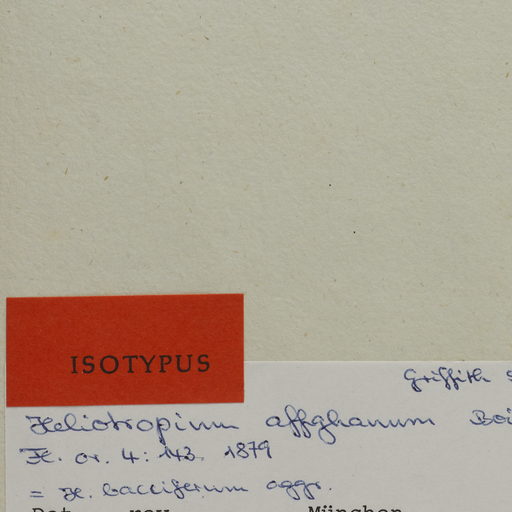 ISOTYPUS
Griffith
Heliotropium affghanum Boi
Fl. or. 4: 143. 1879
= H. bacciferum aggr.
Det. rev. München